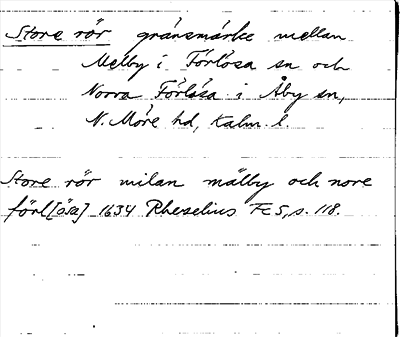 Store rör gränsmärke mellan
Melby i Förlösa sn och
Norra Förlösa i Åby sn,
N. Möre hd, Kalm. l.
Store rör milan mälby och nore
förl[ösa] 1634 Rhezelius Fc 5, s. 118.